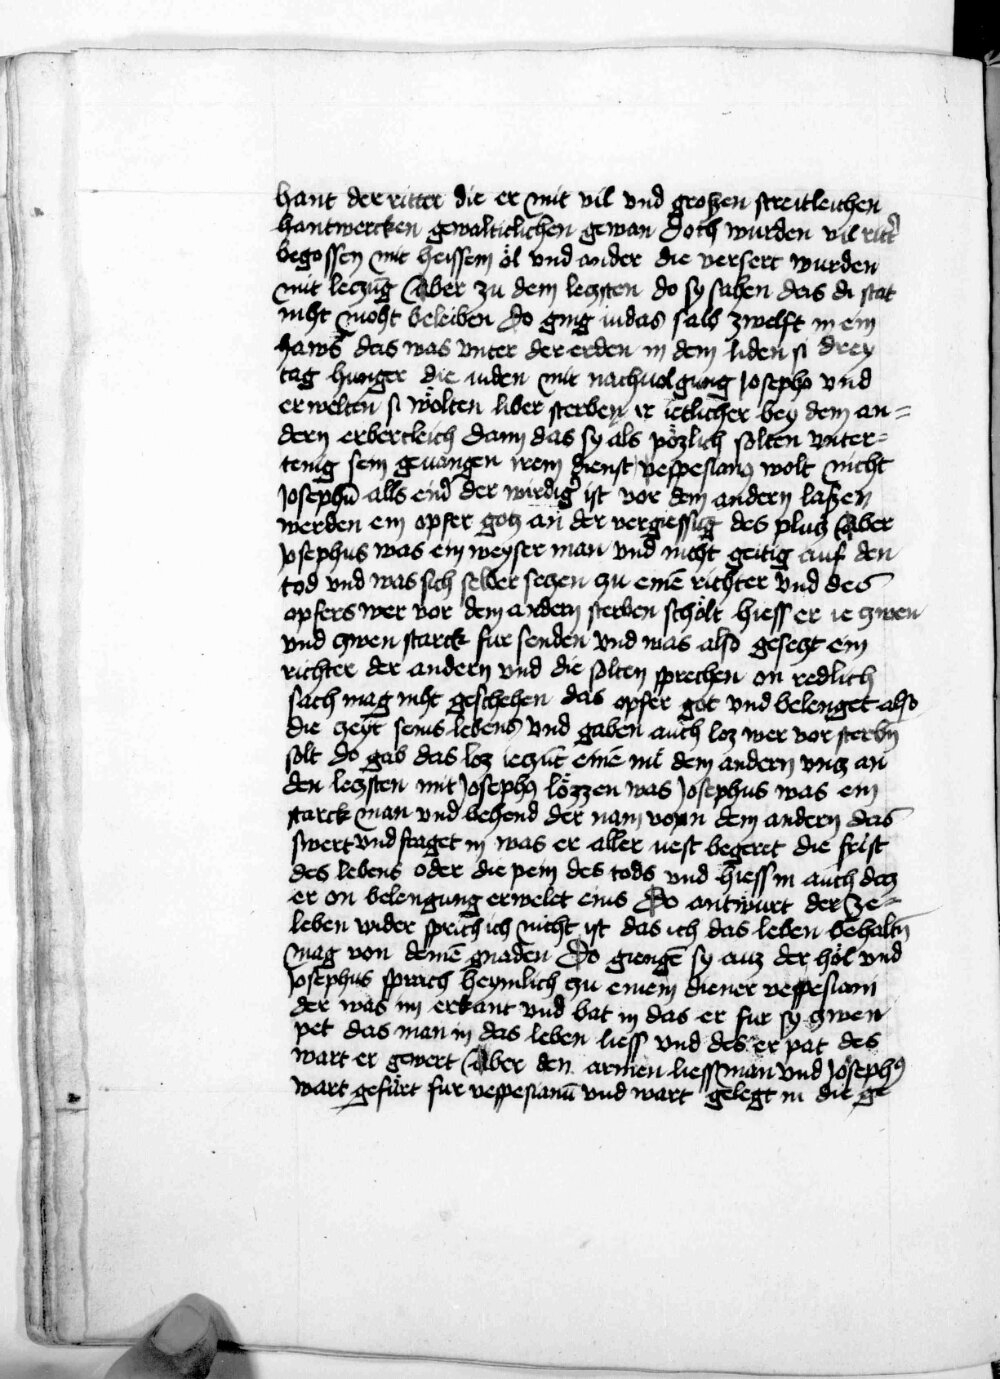 hant der ritter die er mit vil vnd groſzen ſtreitleichen
hantwercken gewalticlichen gewan Doch wurden vil ritt̉
begoſſen mit heiſſem öl vnd ander die verſert wurden
mit leczūg Aber zu dem leczſten do ſy ſahen das di ſtat
niht moht beleiben Do ging iudas ſalb zwelft in ein
haws das was vnter der erden in dem liden ſi drey
tag hunger die iuden mit nachuolgung Joſepho vnd
erwelten ſi wölten liber ſterben ir ietlicher bey dem an=
dern erbercleich dann das ſy als pözlich ſolten vnter=
tenig ſein geuangen irem dienſt veſpeſianꝯ wolt nicht
Joſephū alls eind̉ der wirdig̉ iſt vor dem andern laſzen
werden ein opfer gotz an der vergieſſūg des plutz Aber
Joſephus was ein weyſer man vnd nicht geitig auf den
tod vnd was ſich ſelber ſeczen zu einē richter vnd des
opfers wer vor dem andern ſterben ſchölt hieſſ er ie zwen
vnd zwen ſtarck fur ſenden vnd was alſo geſeczt ein
richter der andern vnd die ſolten ſprechen on redlich
ſach mag niht geſchehen das opfer got vnd belenget alſo
die zeyt ſeins lebens vnd gaben auch loz wer vor ſterbn̄
ſolt do gab das loz ieczūt einē mit dem andern vncz an
den leczſten mit Joſephꝯ lözzen was Joſephus was ein
ſtarck man vnd behend der nam vonn dem andern das
ſwert vnd fraget in was er aller meſt begeret die friſt
des lebens oder die pein des tods vnd hieſſ in auch daz
er on belengung erwelet eins Do antwurt der ze=
leben wider ſprich ich nicht iſt das ich das leben behaltn̄
mag von deinē gnaden Do giengē ſy auz der höl vnd
Joſephus ſprach heymlich zu einem diener veſpeſiani
der was im erkant vnd bat in das er fur ſy zwen
pet das man in das leben lieſſ vnd des er pat des
wart er gewert Aber den armen lieſſ man vnd Joſephꝯ
wart gefürt fur veſpeſianū vnd wart gelegt in die ge